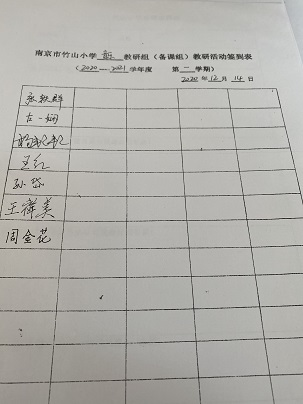 南京市竹山小学 教研组（备课组）教研活动签到表
（2020—2021学年度 第一学期）
2020年12月14日
左一娴
王红
孙岱
王祥美
周金花